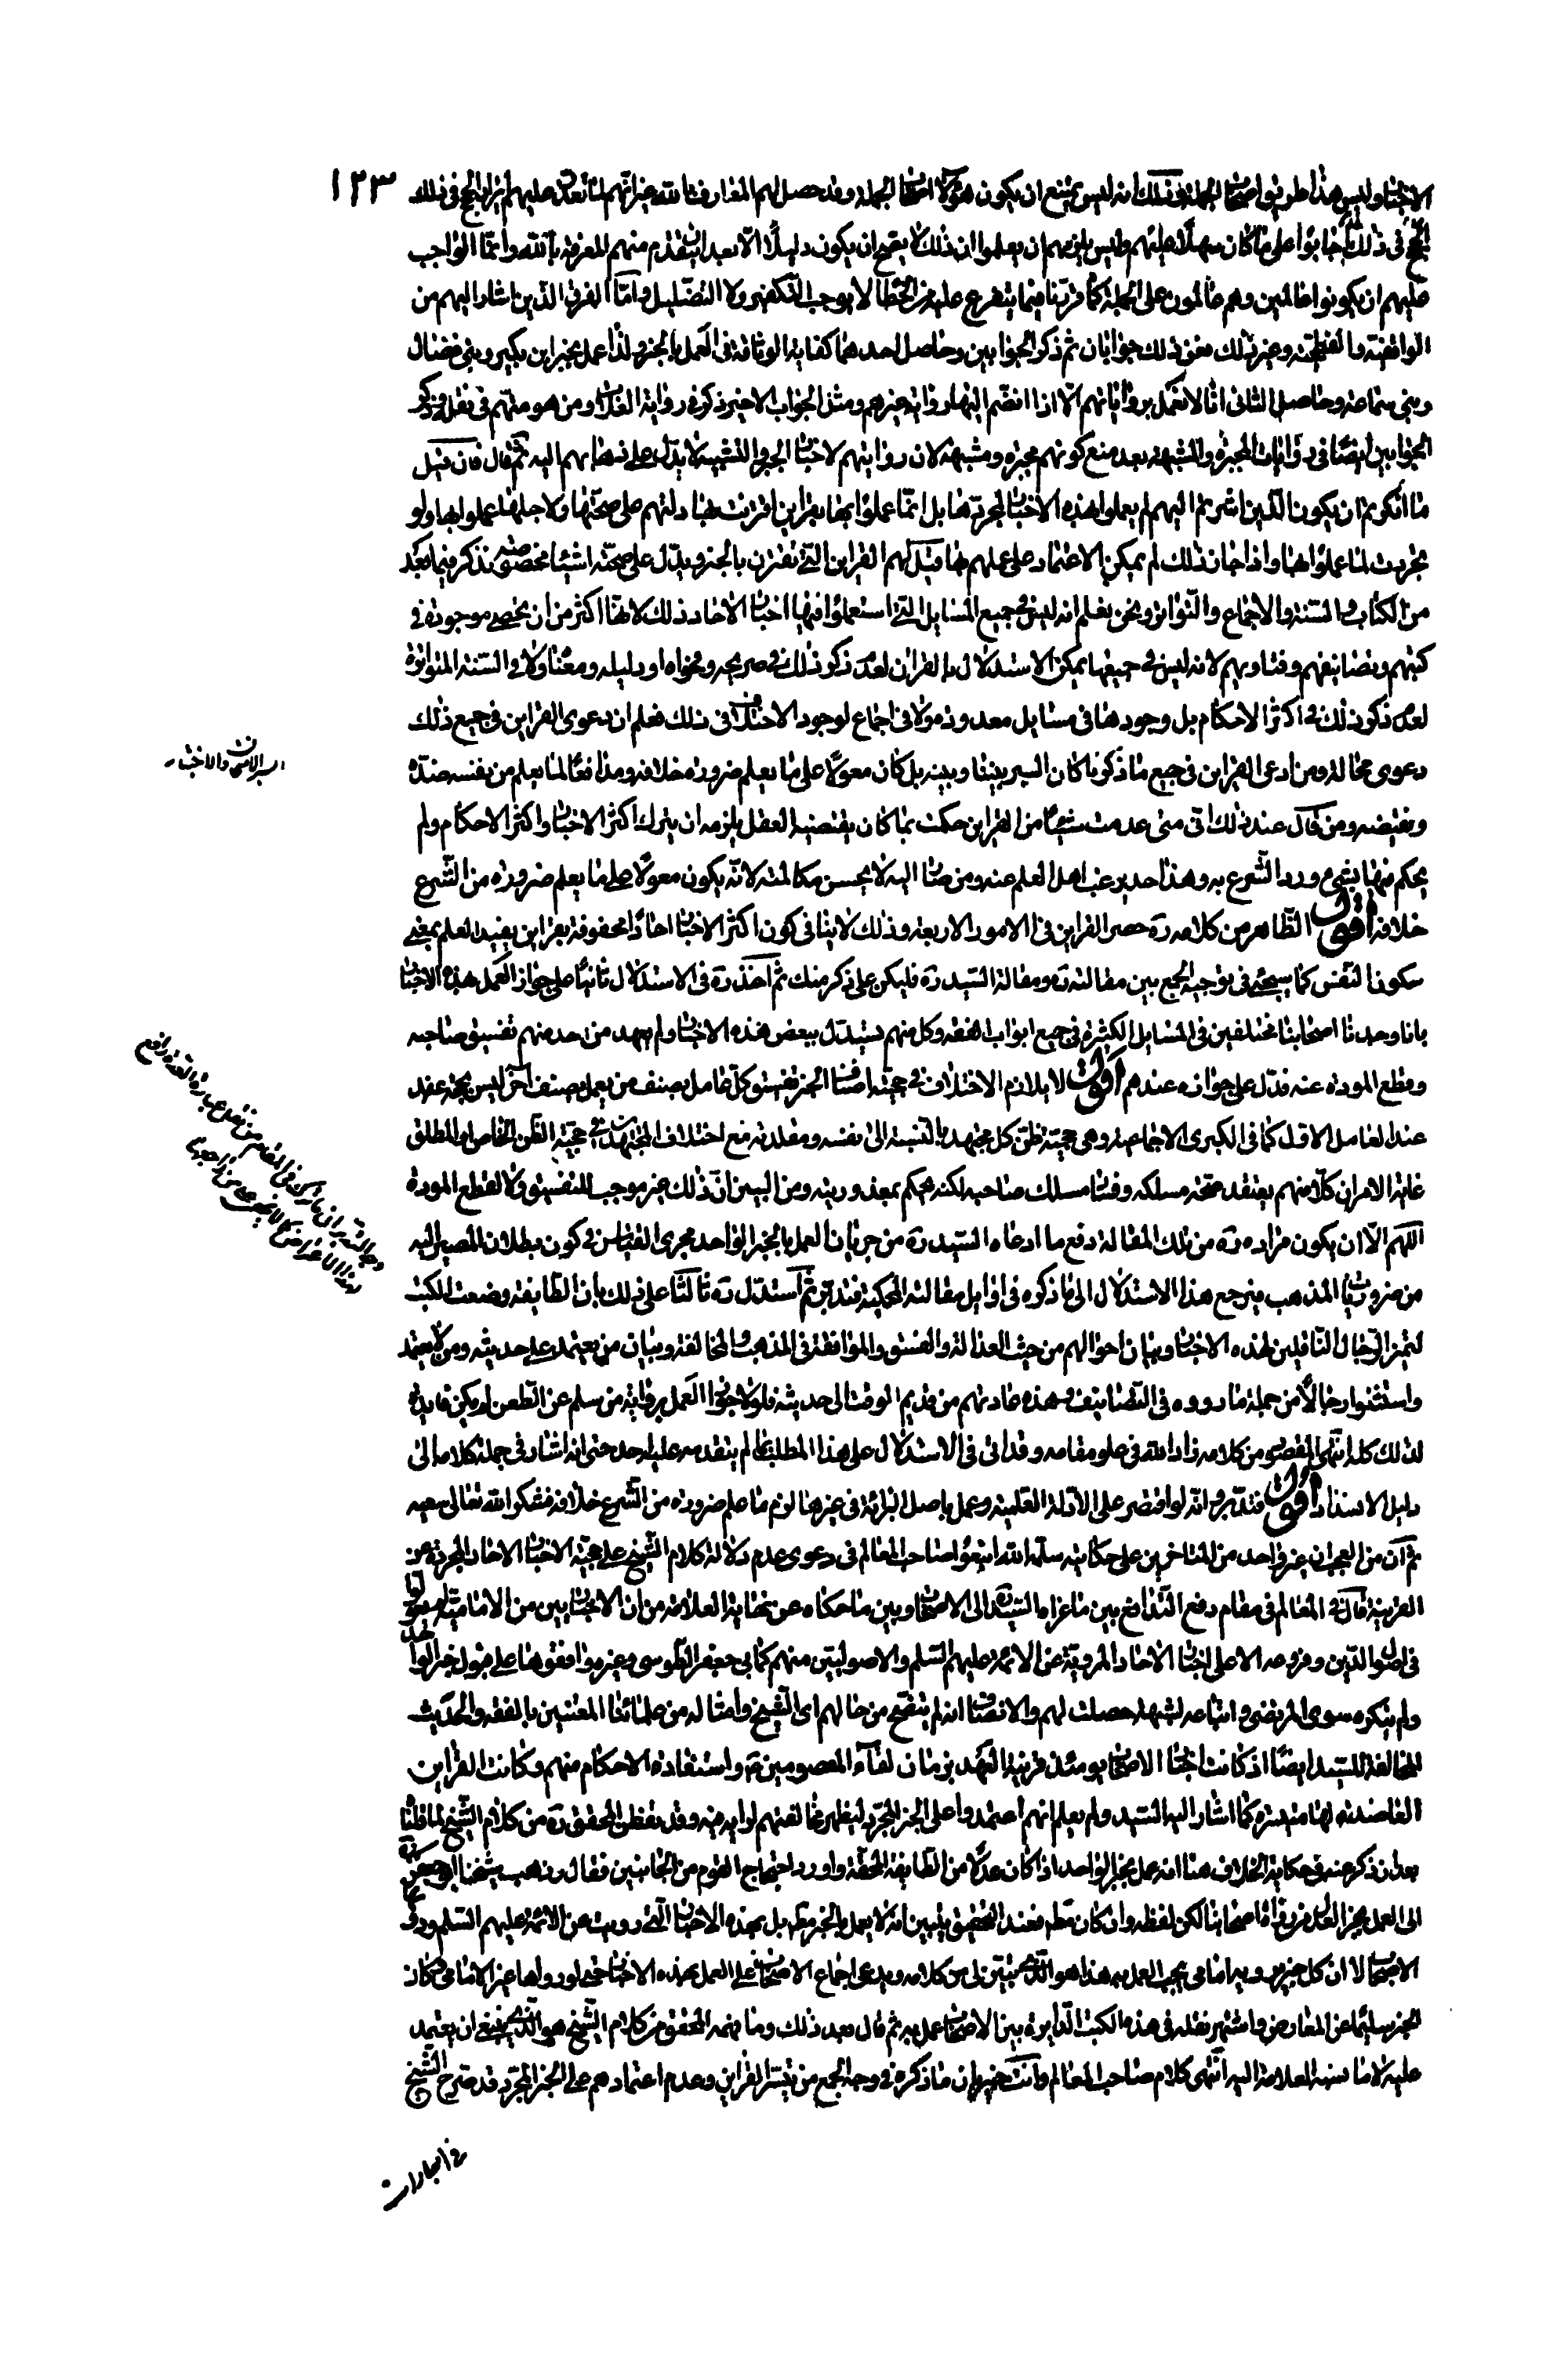 ١٢٣
الاخبار وليس هذا طريق اصحاب الجملة قلنا ذلك انه ليس يمتنع ان يكون هؤلاء اصحاب الجملة وقد حصل لهم المعارف بالله غير انهم لما تعذر عليهم ايراد الحجج في ذلك
احالوا على ما كان سهلا عليهم وليس يلزمهم ان يعلموا ان ذلك لا يصح ان يكون دليلا الا بعد ان يتقدم منهم المعرفة بالله وانما الواجب
عليهم ان يكونوا عالمين وهم عالمون على الجملة كما قررنا فيما يتفرع عليه من الخطا لا يوجب التكفير ولا التضليل واما الفرق الذين اشار اليهم من
الواقفية والفطحية وغير ذلك فعن ذلك جوابان ثم ذكر الجوابين وحاصل احدهما كفاية الوثاقة في العمل بالخبر ولذا عمل بخبر ابن بكير وبني فضال
وبني سماعة وحاصل الثاني انا لا نعمل برواياتهم الا اذا انضم اليها رواية غيرهم ومثل الجواب الاخير ذكر في رواية الغلاة ومن هو متهم في نقله وذكر
الجوابين ايضا في روايات المجبرة والمشبهة بعد منع كونهم مجبرة ومشبهة لان روايتهم لاخبار الجبر والتشبيه لا يدل على ذهابهم اليه ثم قال فان قيل
ما انكرتم ان يكون الذين اشرتم اليهم لم يعملوا بهذه الاخبار لمجردها بل انما عملوا بها بقراين اقترنت بها دلتهم على صحتها ولاجلها عملوا بها ولو
تجردت لما عملوا بها واذا جاز ذلك لم يمكن الاعتماد على عملهم بها قيل لهم القراين التي تقترن بالخبر ويدل على صحته اشياء مخصوصة نذكر فيما بعد
من الكتاب والسنة والاجماع والتواتر ونحن نعلم انه ليس في جميع المسايل التي استعملوا فيها اخبار الاحاد ذلك لانها اكثر من ان يحصى موجودة في
كتبهم وتصانيفهم وفتاويهم لانه ليس في جميعها يمكن الاستدلال بالقران لعدم ذكر ذلك في صريحه وفحواه او دليله ومعناه ولا في السنة المتواترة
لعدم ذكر ذلك في اكثر الاحكام بل وجودها في مسايل معدودة ولا في اجماع لوجود الاختلاف في ذلك فعلم ان دعوى القراين في جميع ذلك
دعوى محالة ومن ادعى القراين في جميع ما ذكرنا كان السبر بيننا وبينه بل كان معولا على ما يعلم ضرورة خلافه ومدافعا لما يعلم من نفسه ضده
ونقيضه ومن قال عند ذلك اني متى عدمت شيئا من القراين حكمت بما كان يقتضيه العقل يلزمه ان يترك اكثر الاخبار واكثر الاحكام ولم
يحكم فيها بشيء ورد الشرع به وهذا حد يرغب اهل العلم عنه ومن صار اليه لا يحسن مكالمته لانه يكون معولا على ما يعلم ضرورة من الشرع
خلافه اقول الظاهر من كلامه ره حصر القراين في الامور الاربعة وذلك لا ينافي كون اكثر الاخبار احادا محفوفة بقراين يفيد العلم بمعنى
سكون النفس كما سيجيء في توجيه الجمع بين مقالته ره ومقالة السيد ره فليكن على ذكر منك ثم اخذ ره في الاستدلال ثانيا على جواز العمل بهذه الاخبار
بانا وجدنا اصحابنا مختلفين في المسايل الكثيرة في جميع ابواب الفقه وكل منهم يستدل ببعض هذه الاخبار ولم يعهد من احد منهم تفسيق صاحبه
وقطع المودة عنه فدل على جوازه عندهم اقول لا يلازم الاختلاف في حجية اصناف الخبر تفسيق كل عامل بصنف من يعمل بصنف اخر ليس بحجة عند
عند العامل الاول كما في الكبرى الاجماعية وهي حجية ظن كل مجتهد بالنسبة الى نفسه ومقلديه مع اختلاف المجتهدين في حجية الظن الخاص او المطلق
غاية الامر ان كلا منهم يعتقد صحة مسلكه وفساد مسلك صاحبه لكنه يحكم بمعذوريته ومن البين ان ذلك غير موجب للتفسيق ولا لقطع المودة
اللهم الا ان يكون مراده ره من تلك المقالة دفع ما ادعاه السيد ره من جريان العمل بالخبر الواحد مجرى القياس في كون بطلان المصير اليه
من ضروريات المذهب فيرجع هذا الاستدلال الى ما ذكره في اوايل مقالته المحكية فتدبر ثم استدل ره ثالثا على ذلك بان الطايفة وضعت الكتب
لتميز الرجال الناقلين لهذه الاخبار وبيان احوالهم من حيث العدالة والفسق والموافقة في المذهب والمخالفة وبيان من يعتمد على حديثه ومن لا يعتمد
واستثنوا رجالا من جملة ما رووه في التصانيف وهذه عادتهم من قديم الوقت الى حديثه فلولا جواز العمل برواية من سلم عن الطعن لم يكن فايدة
لذلك كله انتهى المقصود من كلامه زاد الله في علو مقامه وقد اتى في الاستدلال على هذا المطلب بما لم يتقدمه عليه احد حتى انه اشار في جملة كلامه الى
دليل الانسداد اقول فتدبر وانه لو اقتصر على الادلة العلمية وعمل باصل البرائة في غيرها لزم ما علم ضرورة من الشرع خلافه فشكر الله تعالى سعيه
ثم ان من العجب ان غير واحد من المتاخرين على حكايته سلمه الله اتبعوا صاحب المعالم في دعوى عدم دلالة كلام الشيخ على حجية الاخبار الاحاد المجردة عن
القرينة قال في المعالم في مقام دفع التدافع بين ما عزاه السيد ره الى الاصحاب وبين ما حكاه عن نهاية العلامة من ان الاخباريين من الامامية لم يعولوا
في اصول الدين وفروعه الا على اخبار الاحاد المروية عن الائمة عليهم السلم والاصوليين منهم كابي جعفر الطوسي وغيره وافقوهم على قبول خبر الواحد
ولم ينكره سوى المرتضى واتباعه لشبهة حصلت لهم والانصاف انه لم يتضح من حالهم اي الشيخ وامثاله من علمائنا المعتنين بالفقه والحديث
المخالفة للسيد ايضا اذ كانت اخبار الاصحاب يومئذ قريبة العهد بزمان لقاء المعصومين ع واستفادة الاحكام منهم وكانت القراين
العاضدة لها متيسرة كما اشار اليه السيد ولم يعلم انهم اعتمدوا على الخبر المجرد ليظهر مخالفتهم لرايه فيه وقد تفطن المحقق ره من كلام الشيخ لما قلناه
بعد ان ذكر عنه في حكاية الخلاف هنا انه عمل بخبر الواحد اذا كان عدلا من الطايفة المحقة واورد احتجاج القوم من الجانبين فقال وذهب شيخنا ابو جعفر ره
الى العمل بخبر العدل من رواة اصحابنا لكن لفظه وان كان مطلقا فعند التحقيق يتبين انه لا يعمل بالخبر مطلقا بل بهذه الاخبار التي رويت عن الائمة عليهم السلم ودونها
الاصحاب لا ان كل خبر يرويه امامي يجب العمل به هذا هو الذي تبين لي من كلامه ويدعي اجماع الاصحاب على العمل بهذه الاخبار حتى لو رواها غير الامامي وكان
الخبر سليما عن المعارض واشتهر نقله في هذه الكتب الدايرة بين الاصحاب عمل به ثم قال بعد ذلك وما فهمه المحقق من كلام الشيخ هو الذي ينبغي ان يعتمد
عليه لا ما نسبه العلامة اليه انتهى كلام صاحب المعالم وانت خبير بان ما ذكره في وجه الجمع من تيسر القراين وعدم اعتمادهم على الخبر المجرد قد صرح الشيخ
السبر الامتحان والاختبار
في العبارات